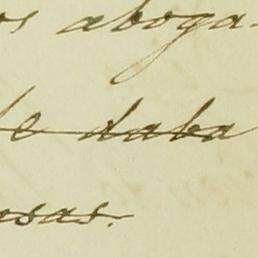 os aboga-
le daba
osas.